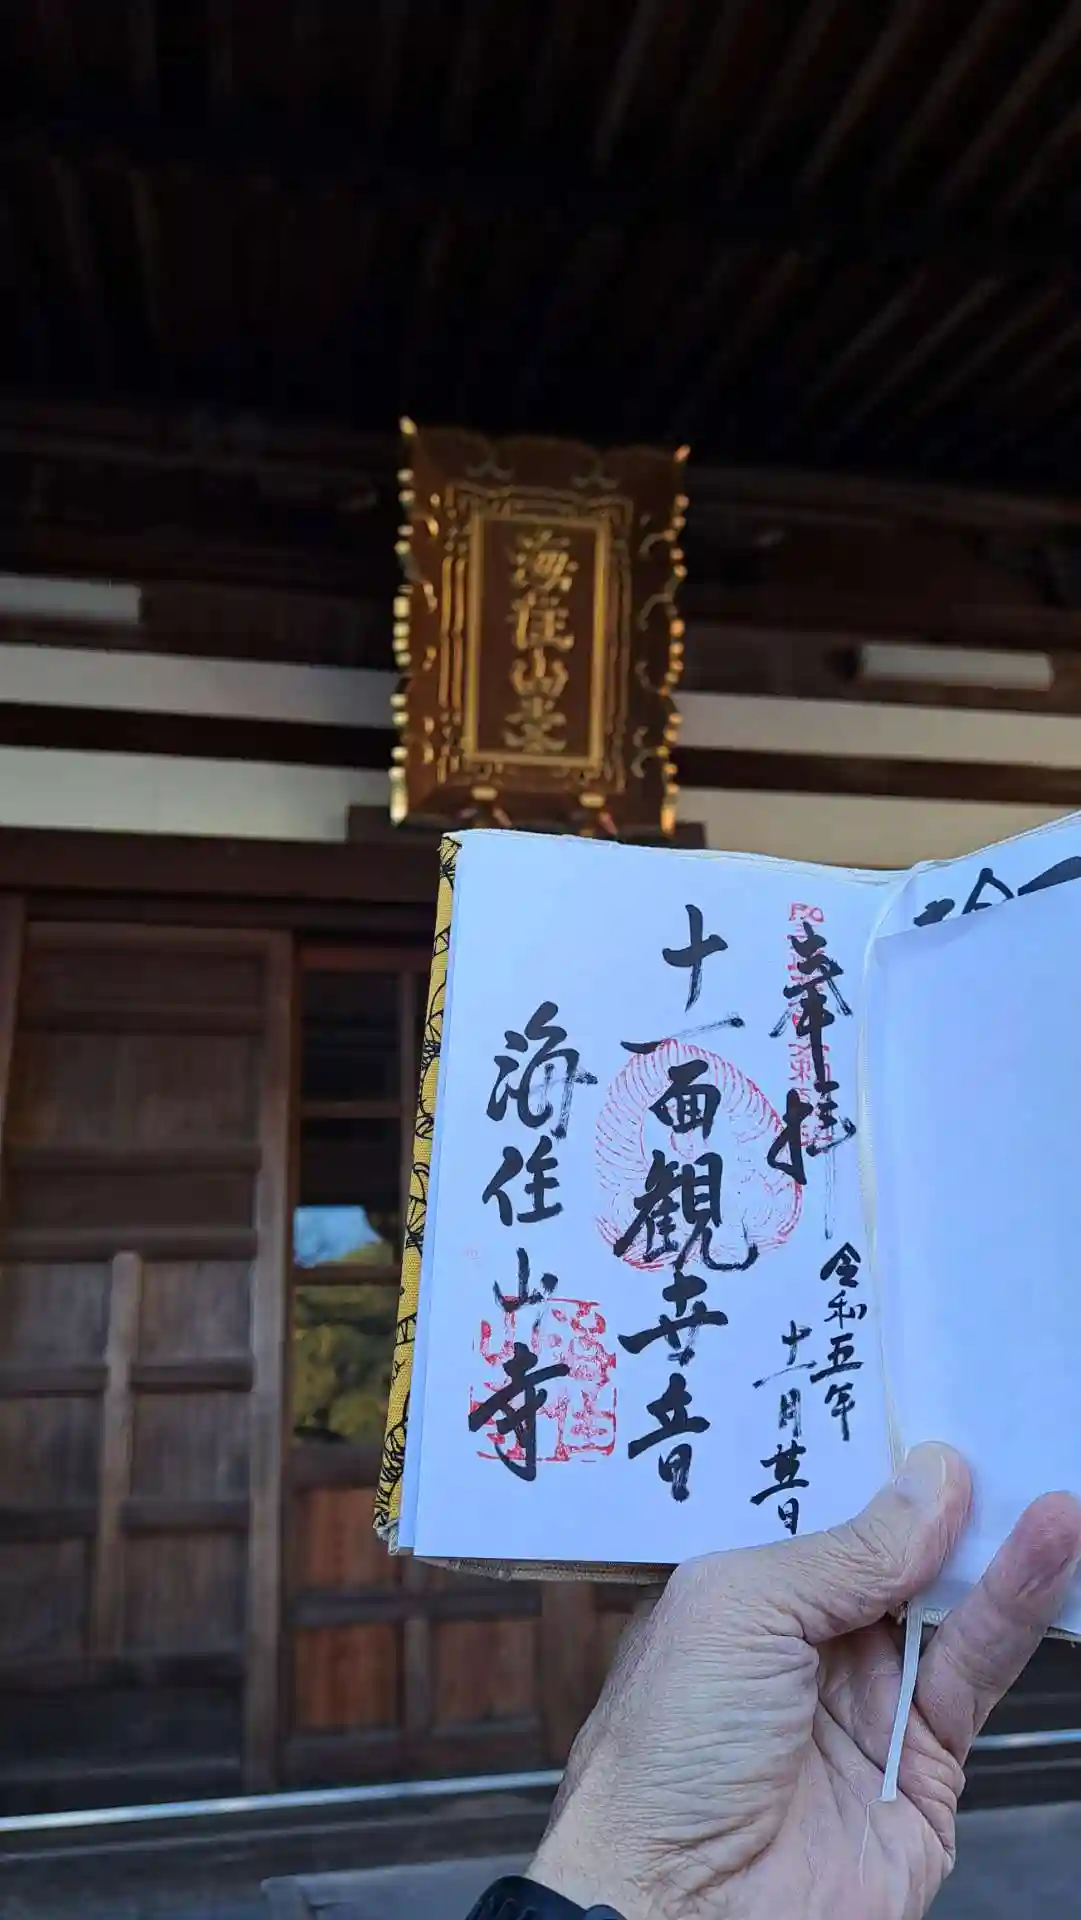 海住山寺
奉拝
令和五年
十一月廿日
十一面観世音
海住山寺